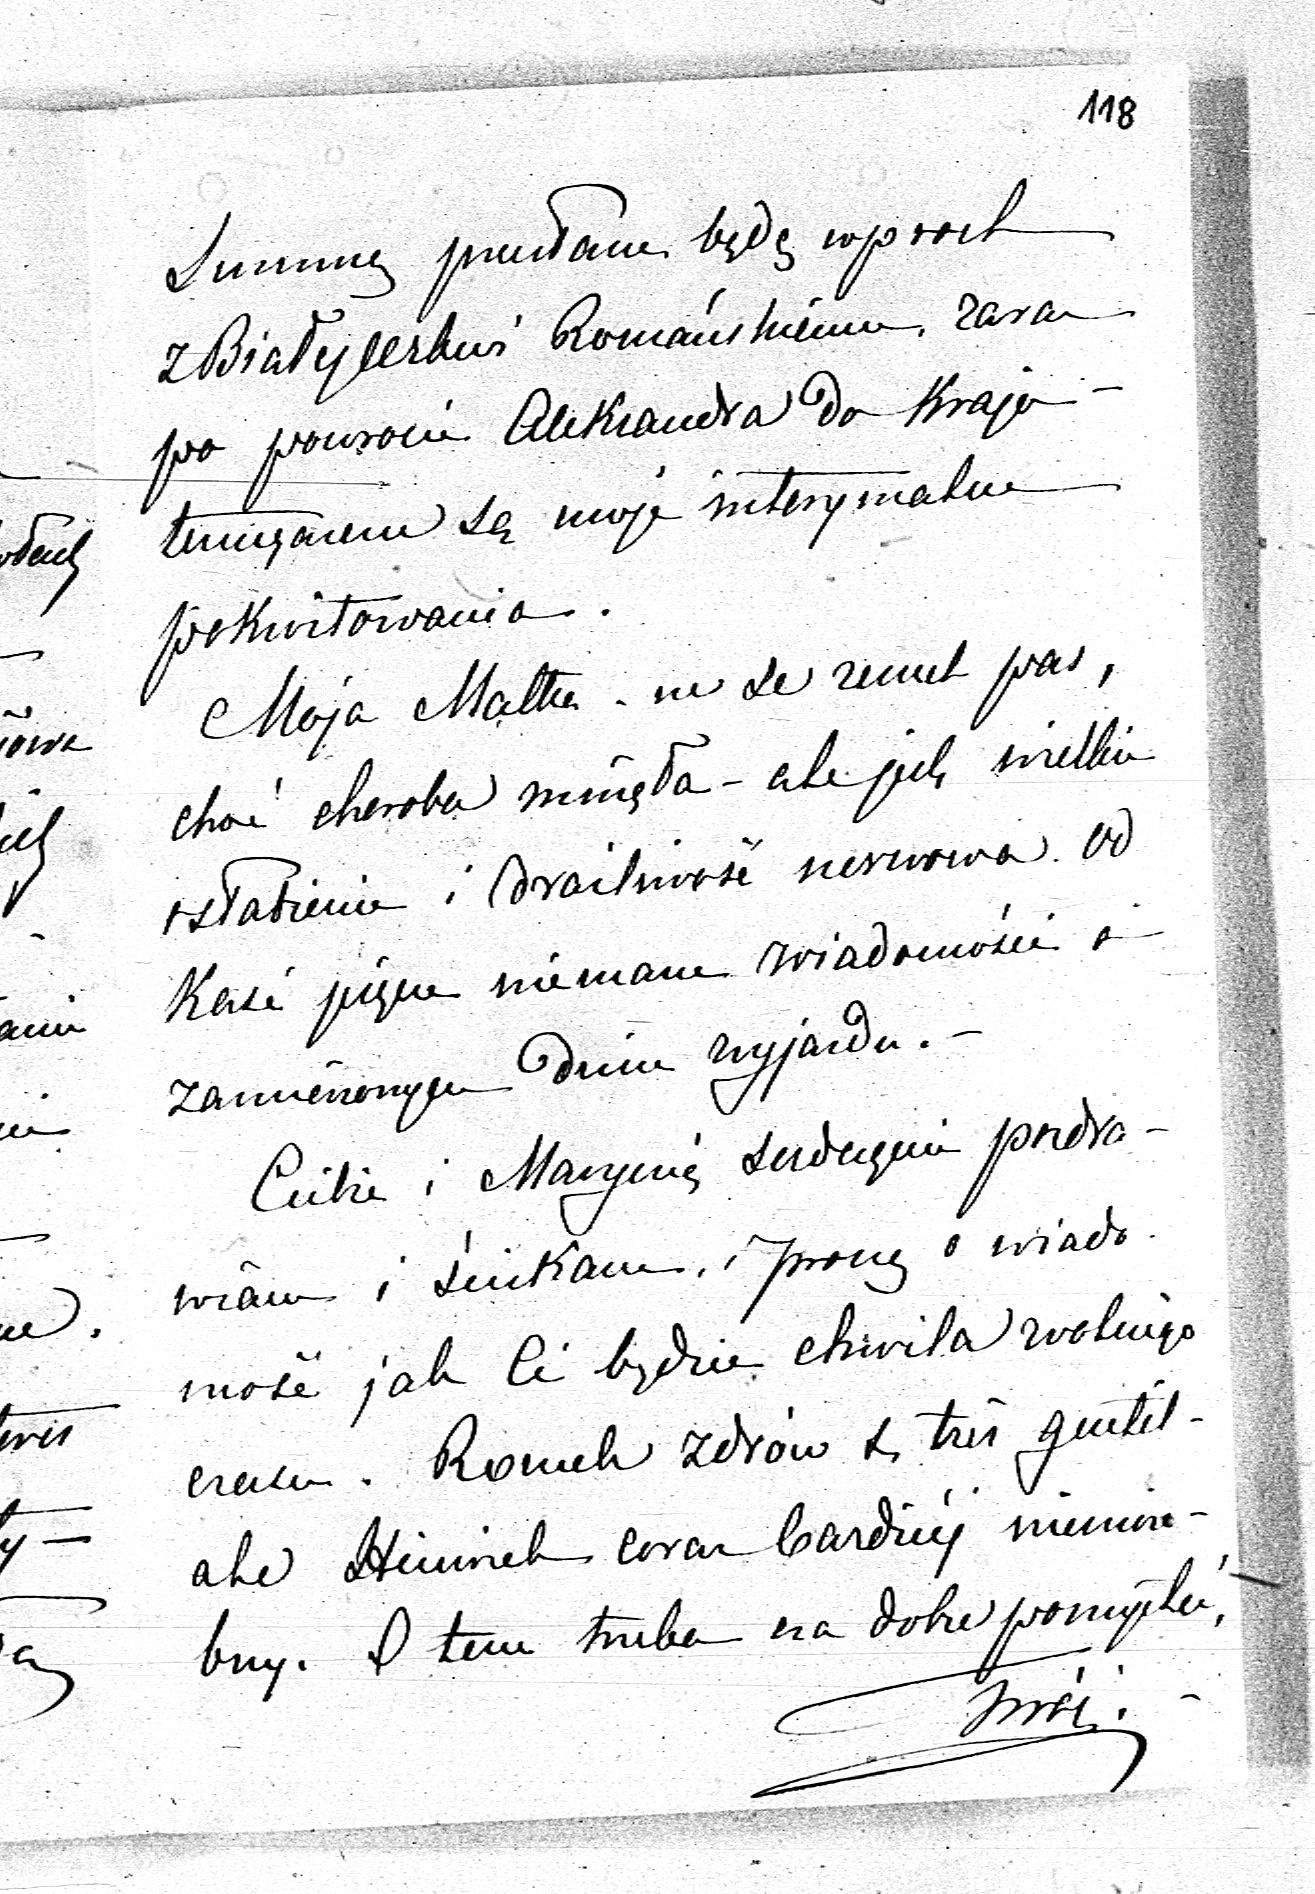 118
Summę przesłane będę wprost
z Białycerkwi Romańskiemu, zara
po powrocie Aleksandra do Kraju -
tymczasem są moje interymalne
pokwitowania.
Moja Matka . ne se remet pas,
choć choroba minęła - ale jest wielkie
osłabienie i drażliwość nerwowa. Od
Kasi jeszcze niemam wiadomości o
zamierzonym dniu wyjazdu. -
Ciebie i Marynię serdecznie pozdra-
wiam i ściskam, i proszę o wiado
mość jak Ci będzie chwila wolnego
czasu. Romek zdrów & très gentil -
ale Henryk coraz bardziej niemoże-
bny. O tem trzeba na dobre pomyśleć,
Twój. -